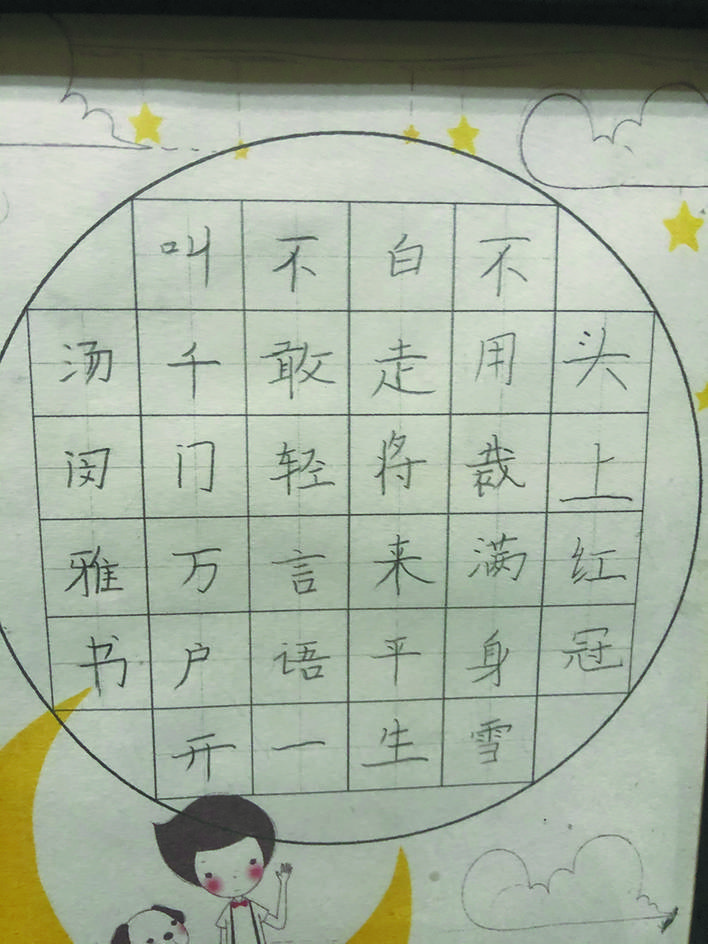 头上红冠
不用裁满身雪
白走将来平生
不敢轻言语一
叫千门万户开
汤闵雅书